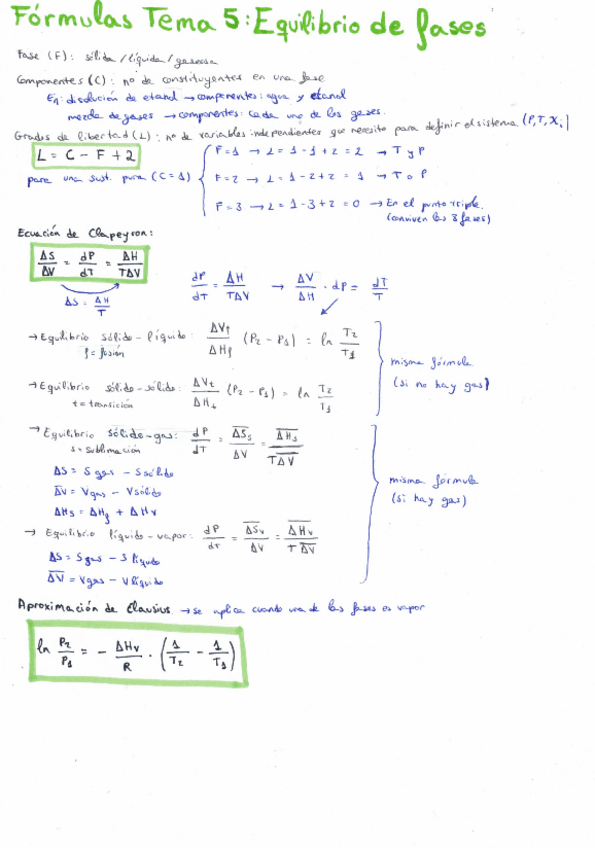 Fórmulas Tema 5: Equilibrio de fases
Fase (F): sólida / líquida / gaseosa
Componentes (C): nº de constituyentes en una fase
Ej: disolución de etanol → componentes: agua y etanol
mezcla de gases → componentes: cada uno de los gases.
Grados de libertad (L): nº de variables independientes que necesito para definir el sistema (P, T, Xi)
L = C - F + 2
para una sust. pura (C=1)
F=1 → L = 1 - 1 + 2 = 2 → T y P
F=2 → L = 1 - 2 + 2 = 1 → T o P
F=3 → L = 1 - 3 + 2 = 0 → En el punto triple.
(conviven las 3 fases)
Ecuación de Clapeyron:
ΔS/ΔV = dP/dT = ΔH/TΔV
ΔS = ΔH/T
dP/dT = ΔH/TΔV → ΔV/ΔH · dP = dT/T
→ Equilibrio sólido-líquido: ΔVf/ΔHf (P2 - P1) = ln T2/T1
f = fusión
→ Equilibrio sólido-sólido: ΔVt/ΔHt (P2 - P1) = ln T2/T1
t = transición
misma fórmula
(si no hay gas)
→ Equilibrio sólido-gas: dP/dT = ΔS̅s/ΔV = ΔH̅s/TΔV̅
s = sublimación
ΔS = Sgas - Ssólido
ΔV̅ = Vgas - Vsólido
ΔHs = ΔHf + ΔHv
→ Equilibrio líquido-vapor: dP/dT = ΔS̅v/ΔV = ΔH̅v/TΔV̅
ΔS = Sgas - Slíquido
ΔV̅ = Vgas - Vlíquido
misma fórmula
(si hay gas)
Aproximación de Clausius → se aplica cuando una de las fases es vapor
ln P2/P1 = - ΔHv/R · (1/T2 - 1/T1)